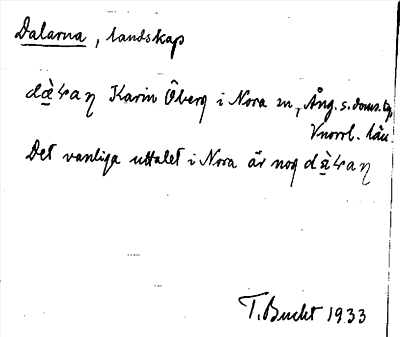 Dalarna, landskap
dæ̀ɽaŋ Karin Öberg i Nora sn, Ång. s. doms.
Vnorrl. län.
Det vanliga uttalet i Nora är nog dàɽaŋ
T. Bucht 1933